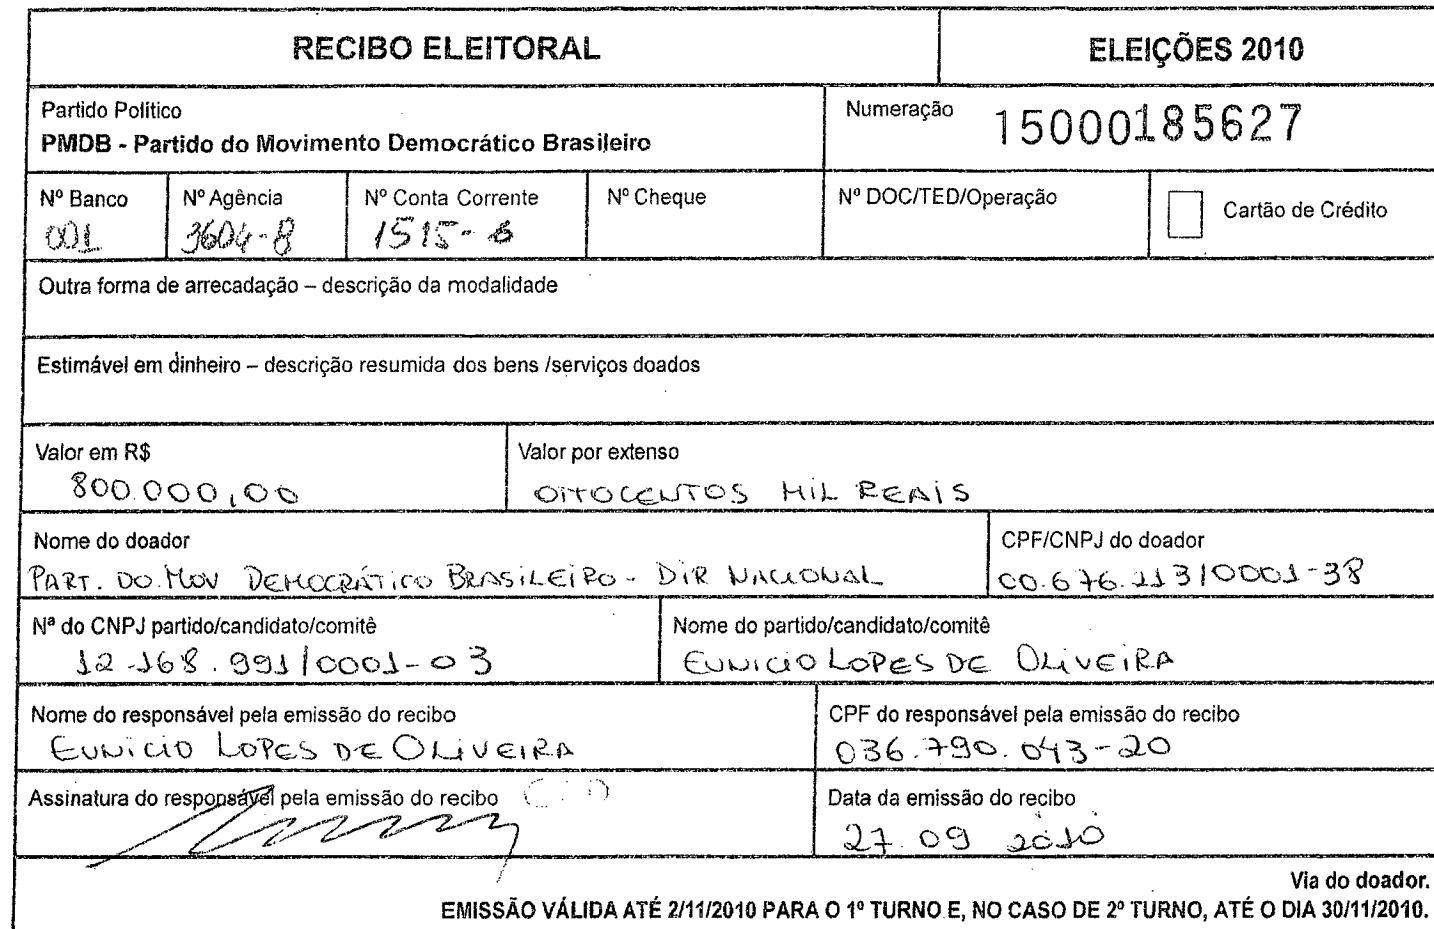 RECIBO ELEITORAL
ELEIÇÕES 2010
Partido Político
PMDB - Partido do Movimento Democrático Brasileiro
Numeração 15000185627
Nº Banco
001
Nº Agência
3604-8
Nº Conta Corrente
1515-
Nº Cheque
Nº DOC/TED/Operação
Cartão de Crédito
Outra forma de arrecadação – descrição da modalidade
Estimável em dinheiro – descrição resumida dos bens /serviços doados
Valor em R$
800.000,00
Valor por extenso
OITOCENTOS MIL REAIS
Nome do doador
PART. DO MOV DEMOCRÁTICO BRASILEIRO - DIR NACIONAL
CPF/CNPJ do doador
00.676.213/0001-38
Nª do CNPJ partido/candidato/comitê
12.168.991/0001-03
Nome do partido/candidato/comitê
EUNICIO LOPES DE OLIVEIRA
Nome do responsável pela emissão do recibo
EUNICIO LOPES DE OLIVEIRA
CPF do responsável pela emissão do recibo
036.790.043-20
Assinatura do responsável pela emissão do recibo
Data da emissão do recibo
27.09 2010
Via do doador.
EMISSÃO VÁLIDA ATÉ 2/11/2010 PARA O 1º TURNO E, NO CASO DE 2º TURNO, ATÉ O DIA 30/11/2010.